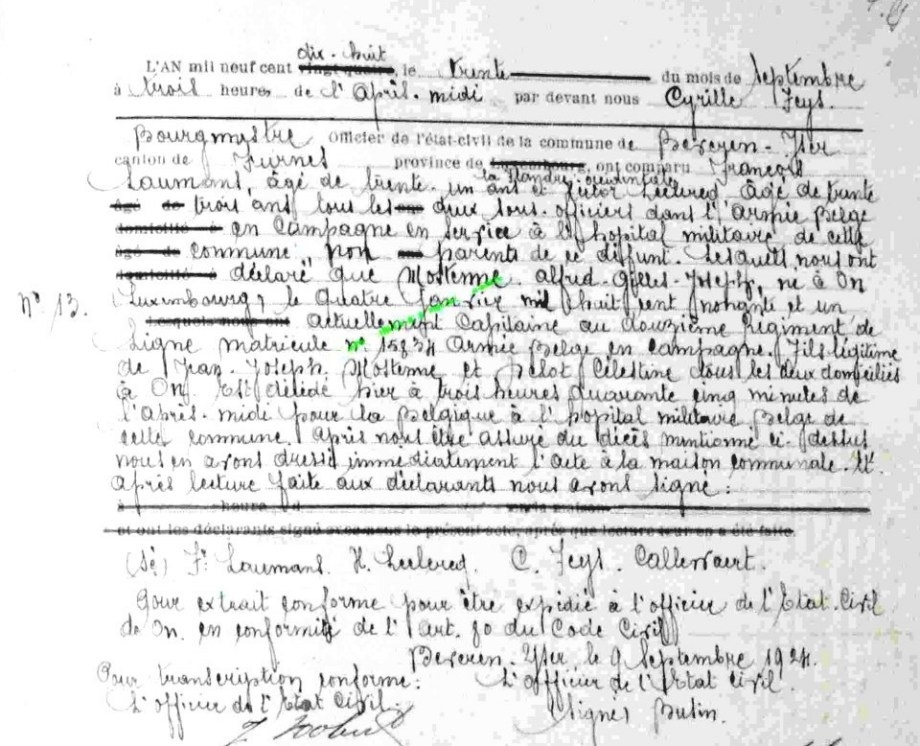 dix-huit
L'AN mil neuf cent vingt quatre, le trente du mois de Septembre
à trois heures de l'après-midi par devant nous Cyrille Feys.
Bourgmestre Officier de l'état-civil de la commune de Beveren-Yser
canton de Furnes province de Luxembourg, ont comparu François
la Flandre occidentale
Laumans, âgé de trente-un ans et Leclercq âgé de trente
âgé de trois ans tous les deux sous-officiers dans l'armée Belge
domicilié à en campagne en service à l'hopital militaire de cette
âgé de commune, non parents de ce défunt. Lesquels nous ont
domicilié à déclaré que Mostenne alfred-Gilles-Joseph, né à On
Nº 13.
Luxembourg, le quatre janvier mil huit cent nonante et un
Lesquels nous ont actuellement Capitaine au douzième Régiment de
Ligne matricule nº 15834 Armée Belge en campagne. Fils légitime
de Jean-Joseph Mostenne et Pelot Célestine tous les deux domiciliés
à On. Est décédé hier à trois heures quarante cinq minutes de
l'après-midi pour la Belgique à l'hopital militaire Belge de
cette commune. Après nous être assuré du décès mentionné ci-dessus
nous en avons dressé immédiatement l'acte à la maison communale. Et
après lecture faite aux déclarants nous avons signé:
à heures du
et ont les déclarants signé avec nous le présent acte, après que lecture leur en a été faite.
(Sé) Fs Laumans. H. Leclercq. C. Feys. Callewaert.
Pour extrait conforme pour être expédié à l'officier de l'Etat-Civil
de On. en conformité de l'art. 80 du Code Civil
Beveren-Yser, le 9 Septembre 1924.
Pour transcription conforme: L'officier de l'Etat civil
L'officier de l'Etat Civil. Signé Butin.